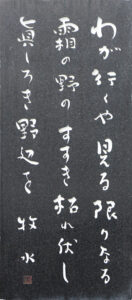 わが行くや見る限りなる
霜の野のすすき枯れ伏し
真しろき野辺を 牧水